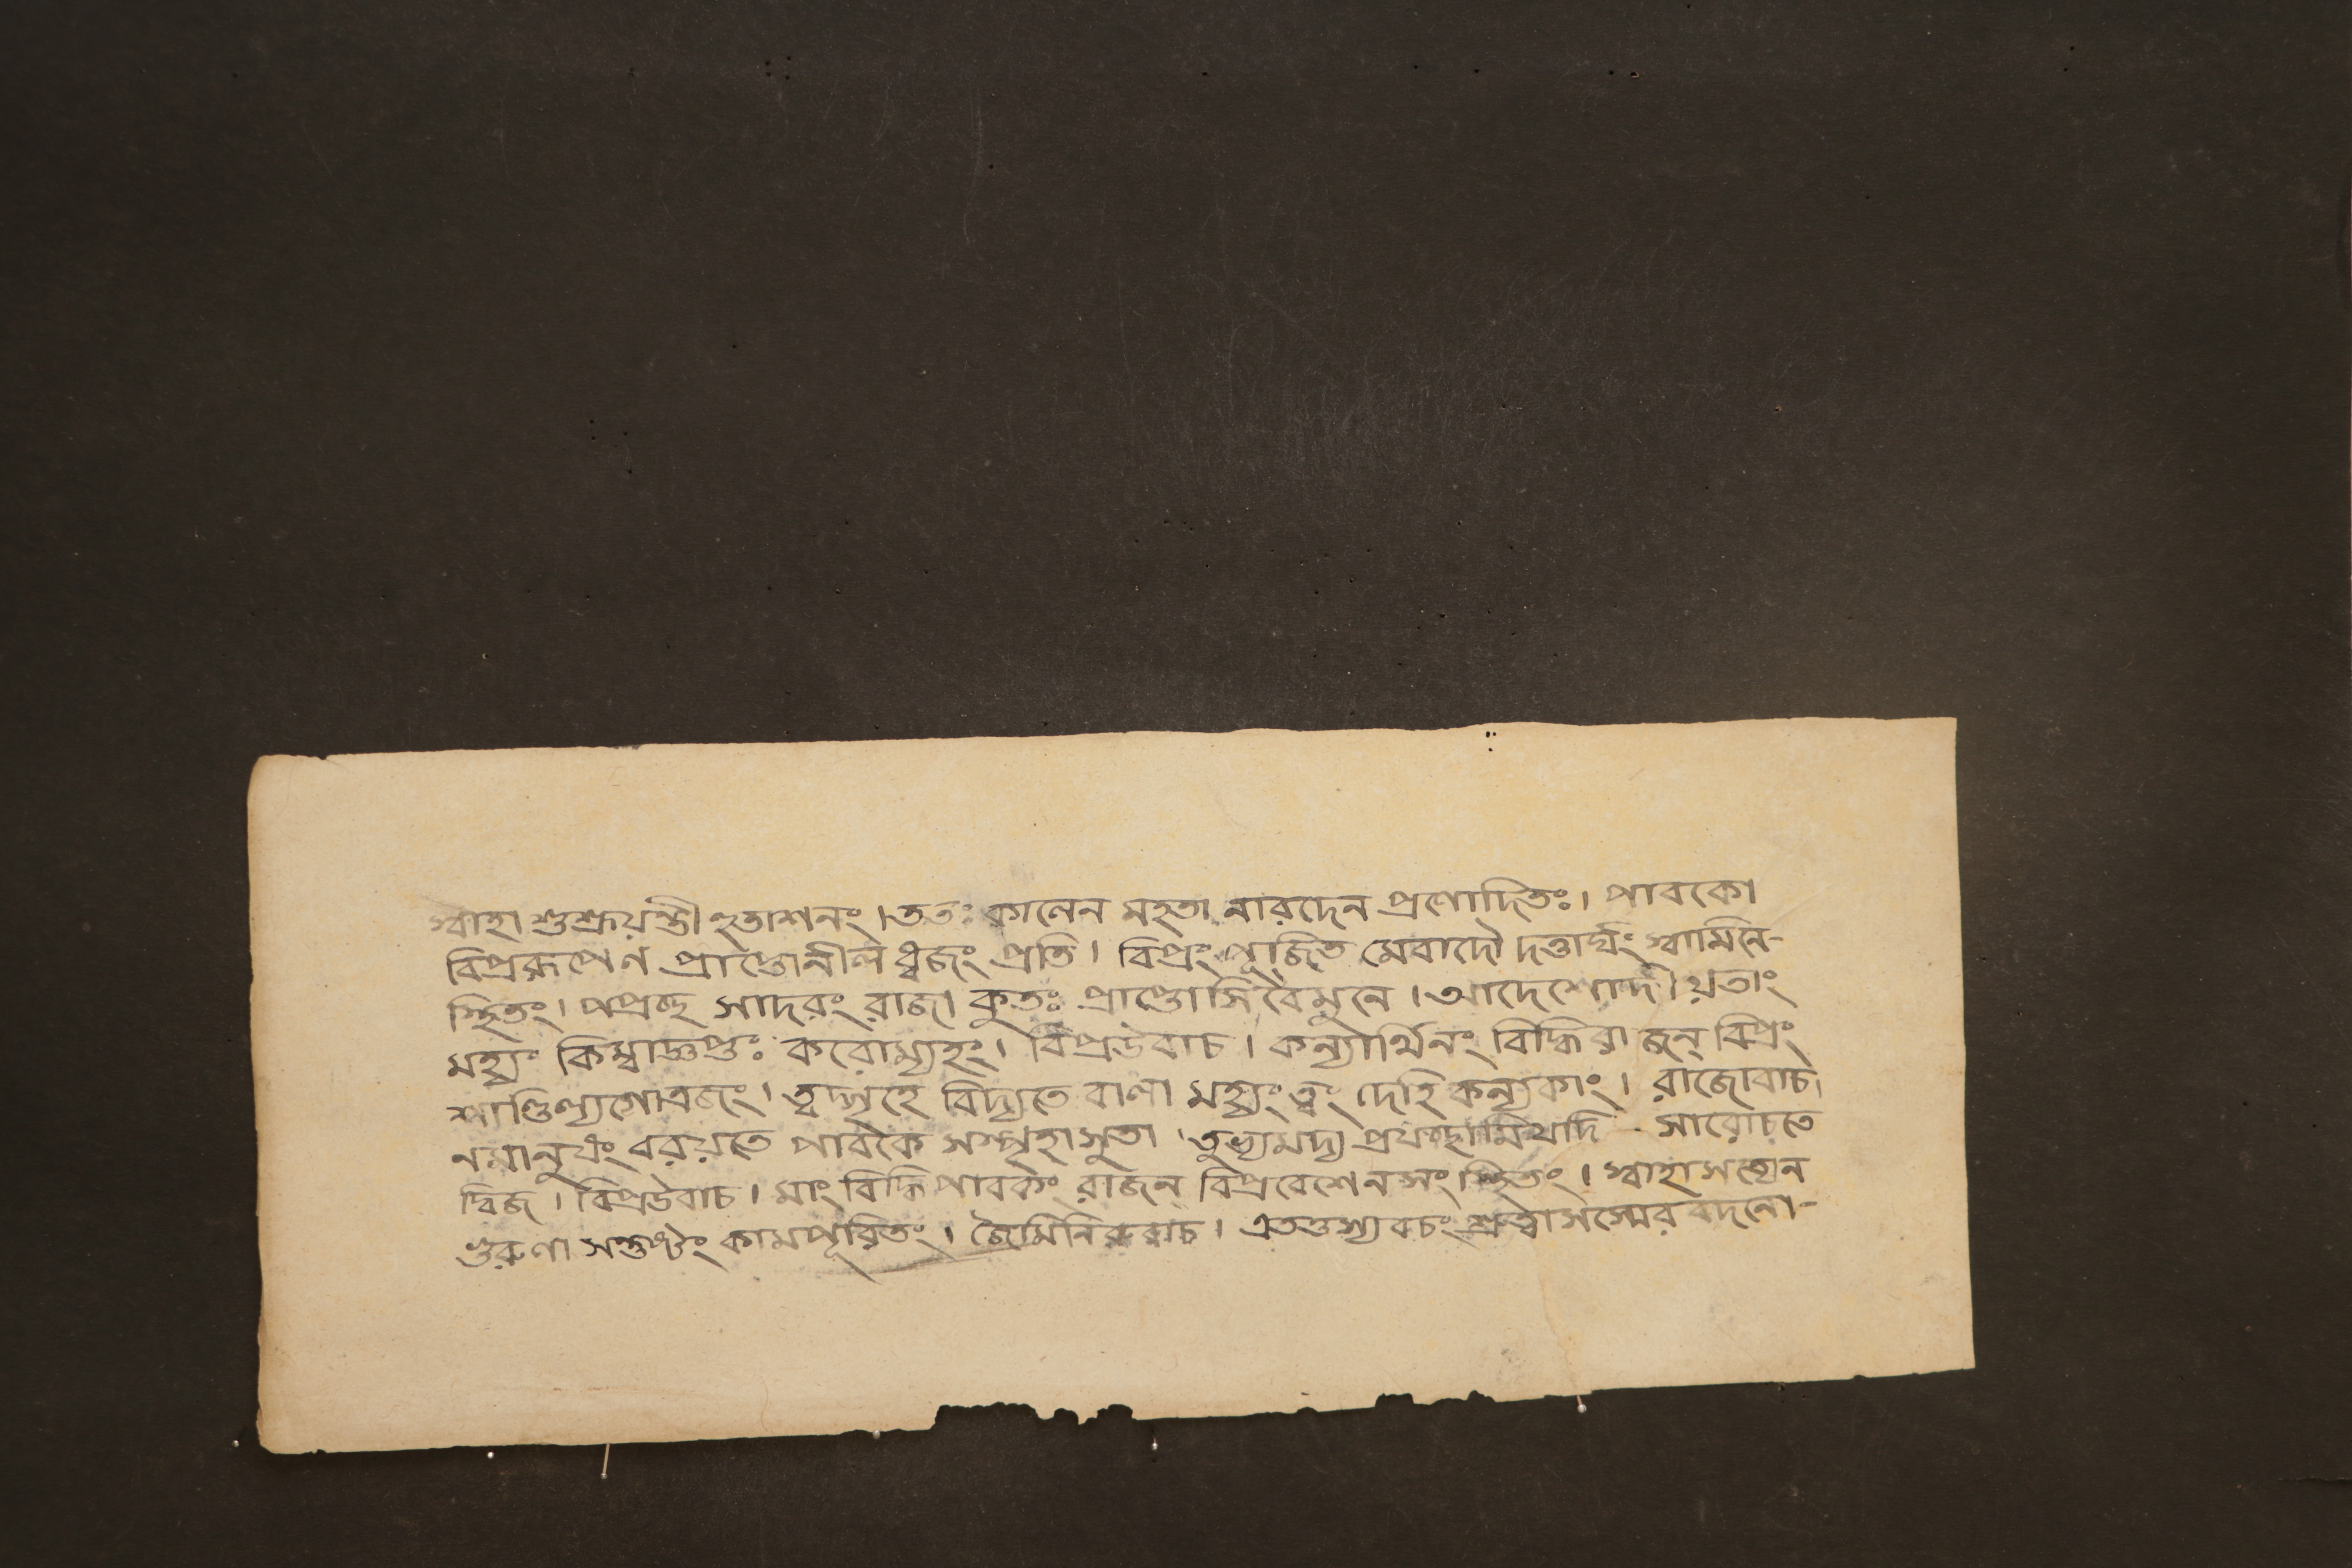 স্বাহা শুশ্রূয়ন্তী হুতাশনং। ততঃ কালেন মহতা নারদেন প্রণোদিতঃ। পাবকো
বিপ্ররূপেণ প্রাপ্তোনীল ধ্বজং প্রতি। বিপ্রং পূজিত মেবাদৌ দত্তার্ঘং স্বামিনে-
স্থিতং। পপ্রচ্ছ সাদরং রাজা কুতঃ প্রাপ্তোসি বৈমুনে। আদেশোদীয়তাং
মহ্যং কিম্বাজ্ঞপ্তঃ করোম্যহং। বিপ্রউবাচ। কন্যার্থিনং বিদ্ধিরাজন্ বিপ্রং
শাণ্ডিল্যগোত্রজং। ত্বদ্গৃহে বিদ্যতে বালা মহ্যং ত্বং দেহি কন্যকাং। রাজোবাচ।
নমানুষং বরয়তে পাবকৈ সস্পৃহাসুতা। তুভ্যমদ্য প্রযচ্ছামিযদি সারোচতে
দ্বিজ। বিপ্রউবাচ। মাং বিদ্ধিপাবকং রাজন্ বিপ্রবেশেনসংস্থিতং। স্বাহাসত্যেন
গুরুণা সন্তুষ্টং কামপূরিতং। জৈমিনিরুবাচ। এতত্তস্যবচং শ্রুত্বাসস্মেরবদনো-